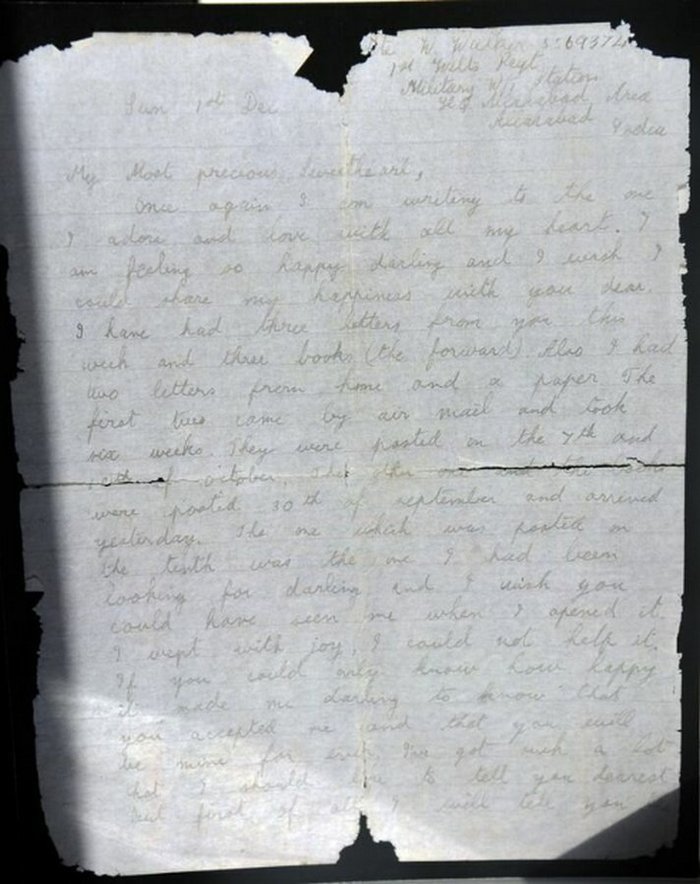 Pte W. Walker 5569374
1st Wilts Regt
Military W/ Station
Allahabad Area
Allahabad India
Sun 1st Dec
My Most precious Sweetheart,
Once again I am writing to the one
I adore and love with all my heart. I
am feeling so happy darling and I wish I
could share my happiness with you dear.
I have had three letters from you this
week and three books (the forward) Also I had
two letters from home and a paper. The
first two came by air mail and took
six weeks. They were posted on the 7th and
10th of october. The other one and the books
were posted 30th of september and arrived
yesterday. The one which was posted on
the tenth was the one I had been
looking for darling and I wish you
could have seen me when I opened it.
I wept with joy, I could not help it.
If you could only know how happy
it made me darling to know that
you accepted me and that you will
be mine for ever. I've got such a lot
that I should like to tell you dearest
but first of all I will tell you